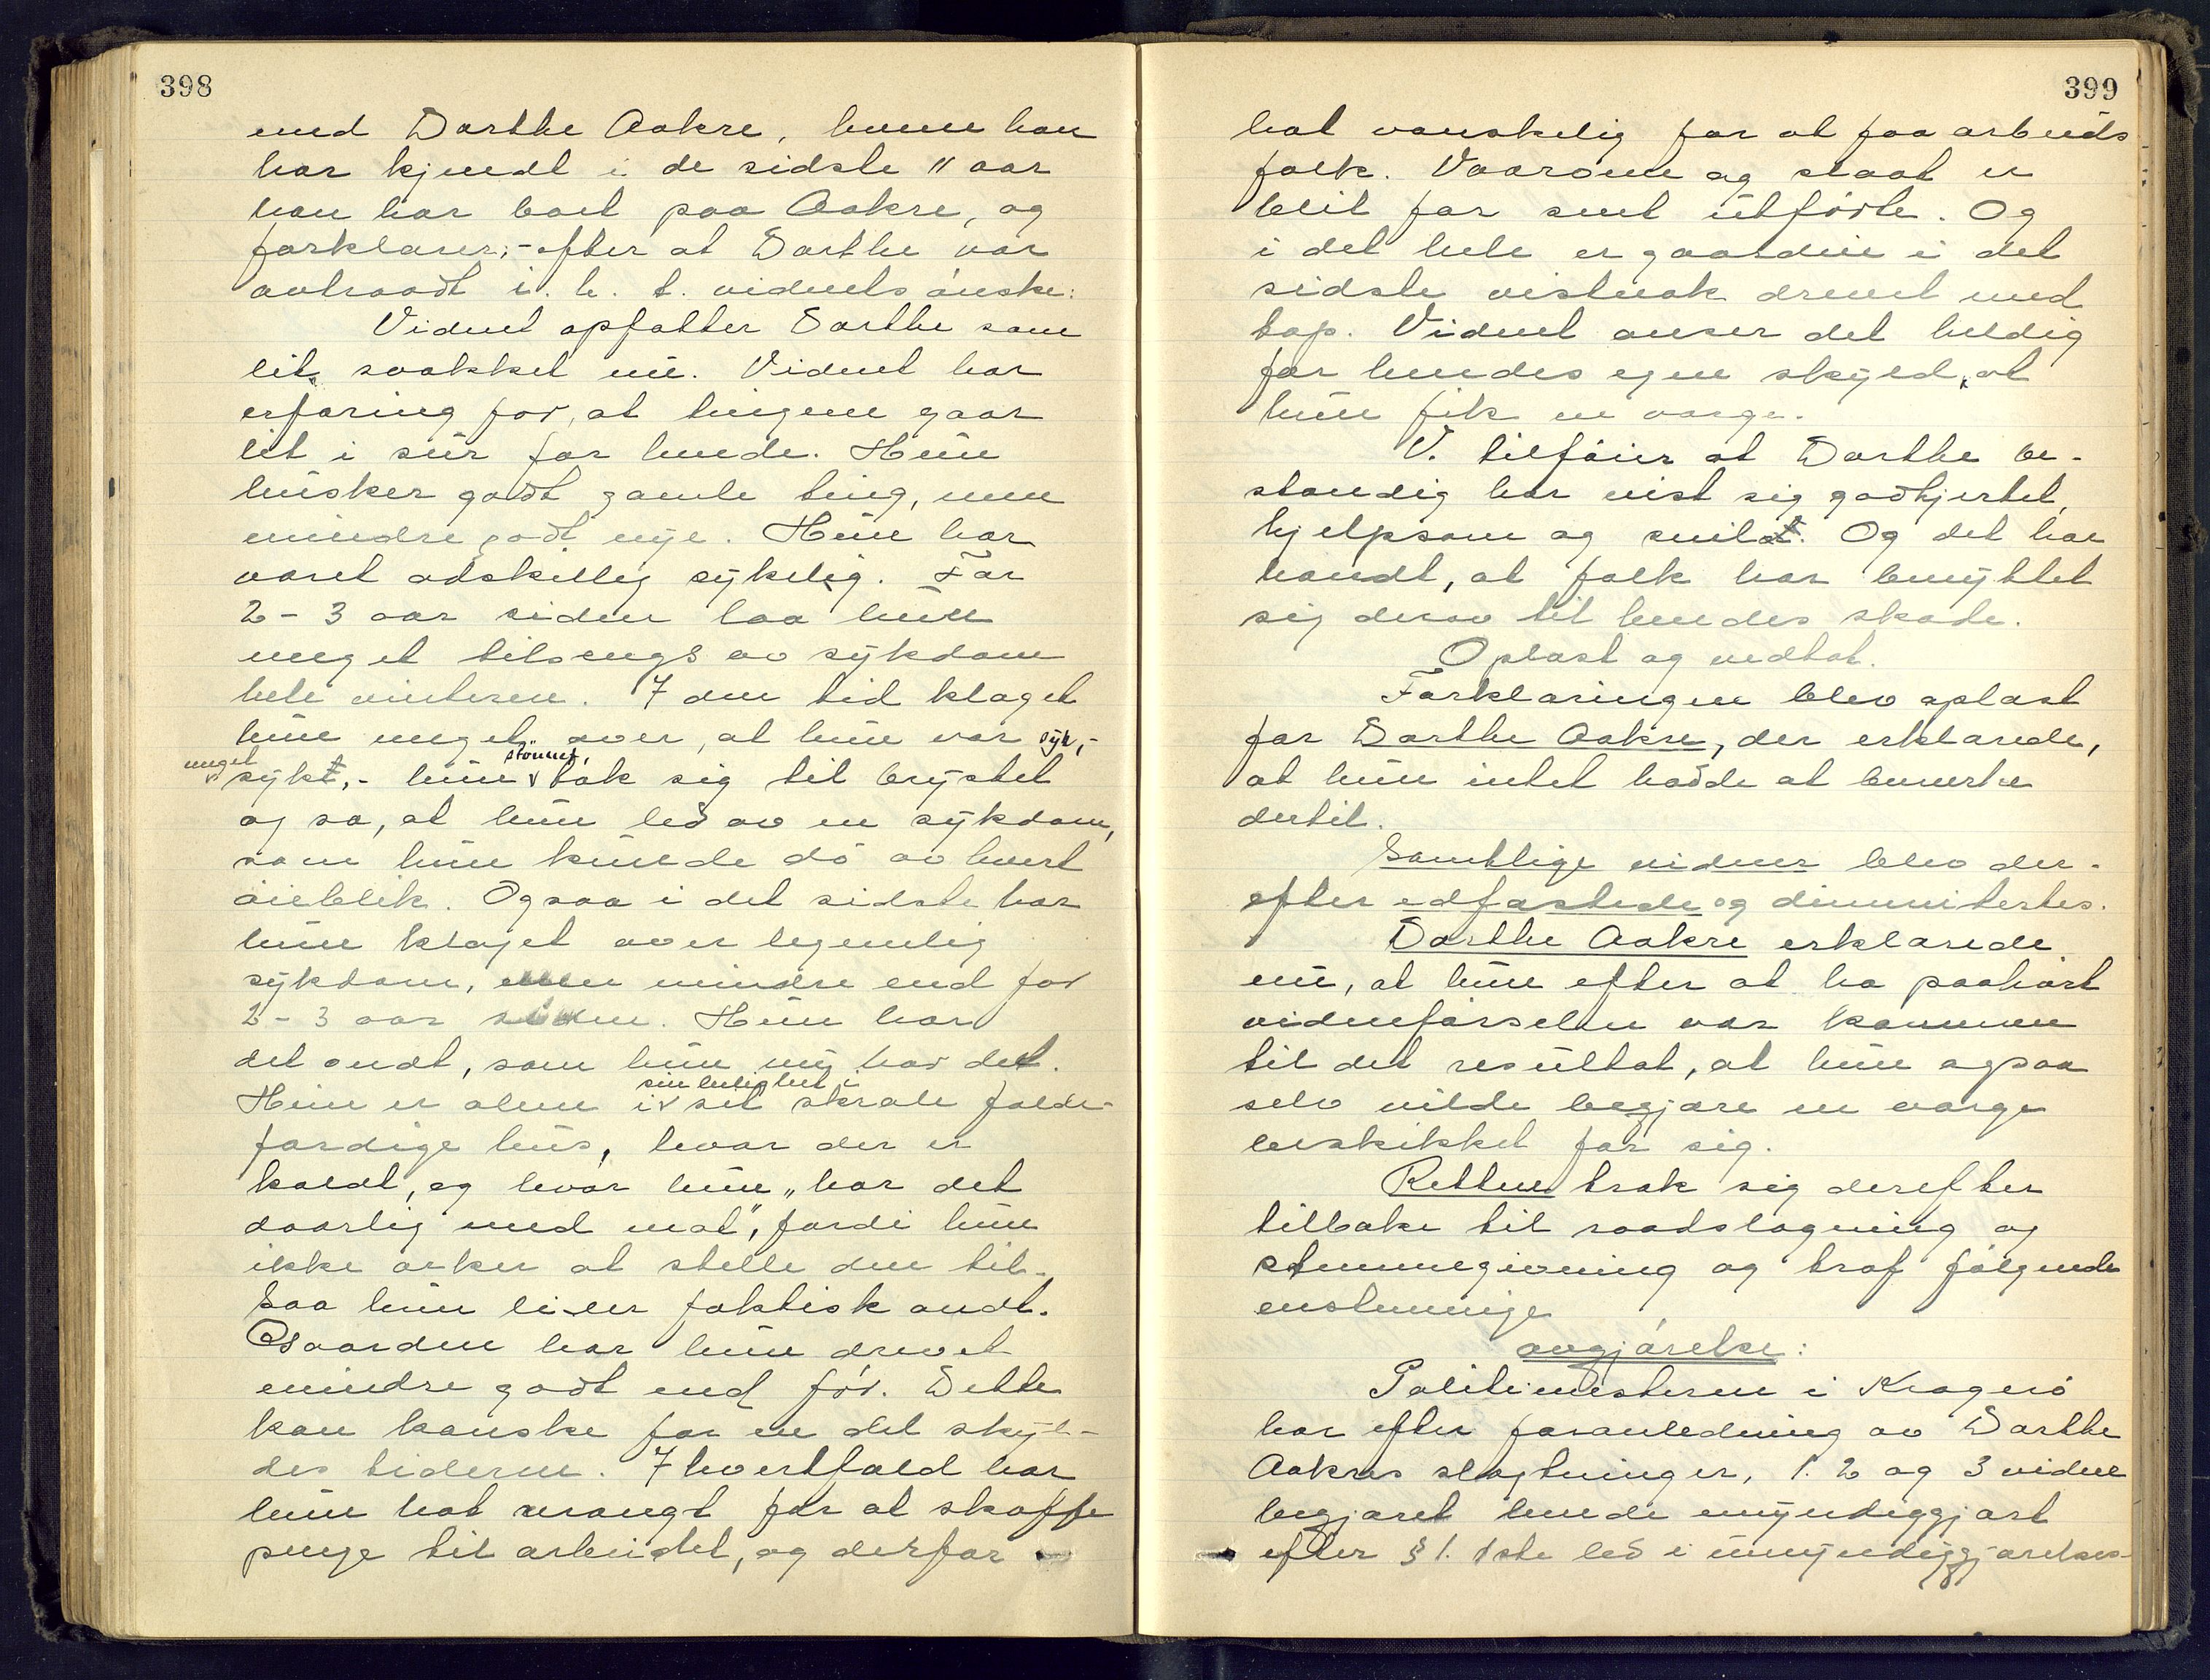 398
med Dorthe Aakre, hvem han
har kjendt i de sidste 11 aar
han har boet paa Aakre, og
forklarer;- efter at Dorthe var
avtraadt i. h. t. vidnets ønske:
Vidnet opfatter Dorthe som
litt svækket nu. Vidnet har
erfaring for, at tingene gaar
lit i sur for hende. Hun
husker godt gamle ting, men
mindre godt nye. Hun har
været adskillig sykelig. For
2 - 3 aar siden laa hun
meget tilsengs av sykdom
hele vinteren. I den tid klaget
hun meget over, at hun var syk,-
meget sykt,- hun stønnet, tok sig til brystet
og sa, at hun led av en sykdom,
som hun kunde dø av hvert
øieblik. Ogsaa i det sidste har
hun klaget over legemlig
sykdom, men mindre end for
2 - 3 aar siden. Hun har
det ondt, som hun nu har det.
Hun er alene i sin leilighet i set skrale falde-
færdige hus, hvor der er
koldt, og hvor hun „har det
daarlig med mat", fordi hun
ikke orker at stelle den til.
Saa hun lider faktisk ondt.
Gaarden har hun drevet
mindre godt end før. Dette
kan kanske for en del skyl-
des tiderne. I hvertfald har
hun hat trangt for at skaffe
penge til arbeidet, og derfor
399
hat vanskelig for at faa arbeids
folk. Vaaronn og slaat er
blit for sent utførte. Og
i det hele er gaarden i det
sidste vistnok drevet med
tap. Vidnet anser det heldig
for hendes egen skyld, at
hun fik en værge.
V. tilføier at Dorthe be-
standig har vist sig godhjertet,
hjelpsom og snild. Og det har
hændt, at folk har benyttet
sig derav til hendes skade.
Oplæst og vedtat.
Forklaringen blev oplæst
for Dorthe Aakre, der erklærede,
at hun intet hadde at bemerke
dertil.
Samtlige vidner blev der-
efter edfæstede og dimmitertes.
Dorthe Aakre erklærede
nu, at hun efter at ha paahørt
vidneførselen var kommen
til det resultat, at hun ogsaa
selv vilde begjære en værge
beskikket for sig.
Retten trak sig derefter
tilbake til raadslagning og
stemmegivning og traf følgende
enstemmige
avgjørelse:
Politimesteren i Kragerø
har efter foranledning av Dorthe
Aakres slægtninger, 1. 2 og 3 vidne
begjæret hende umyndiggjort
efter § 1. 1ste led i umyndiggjørelses-